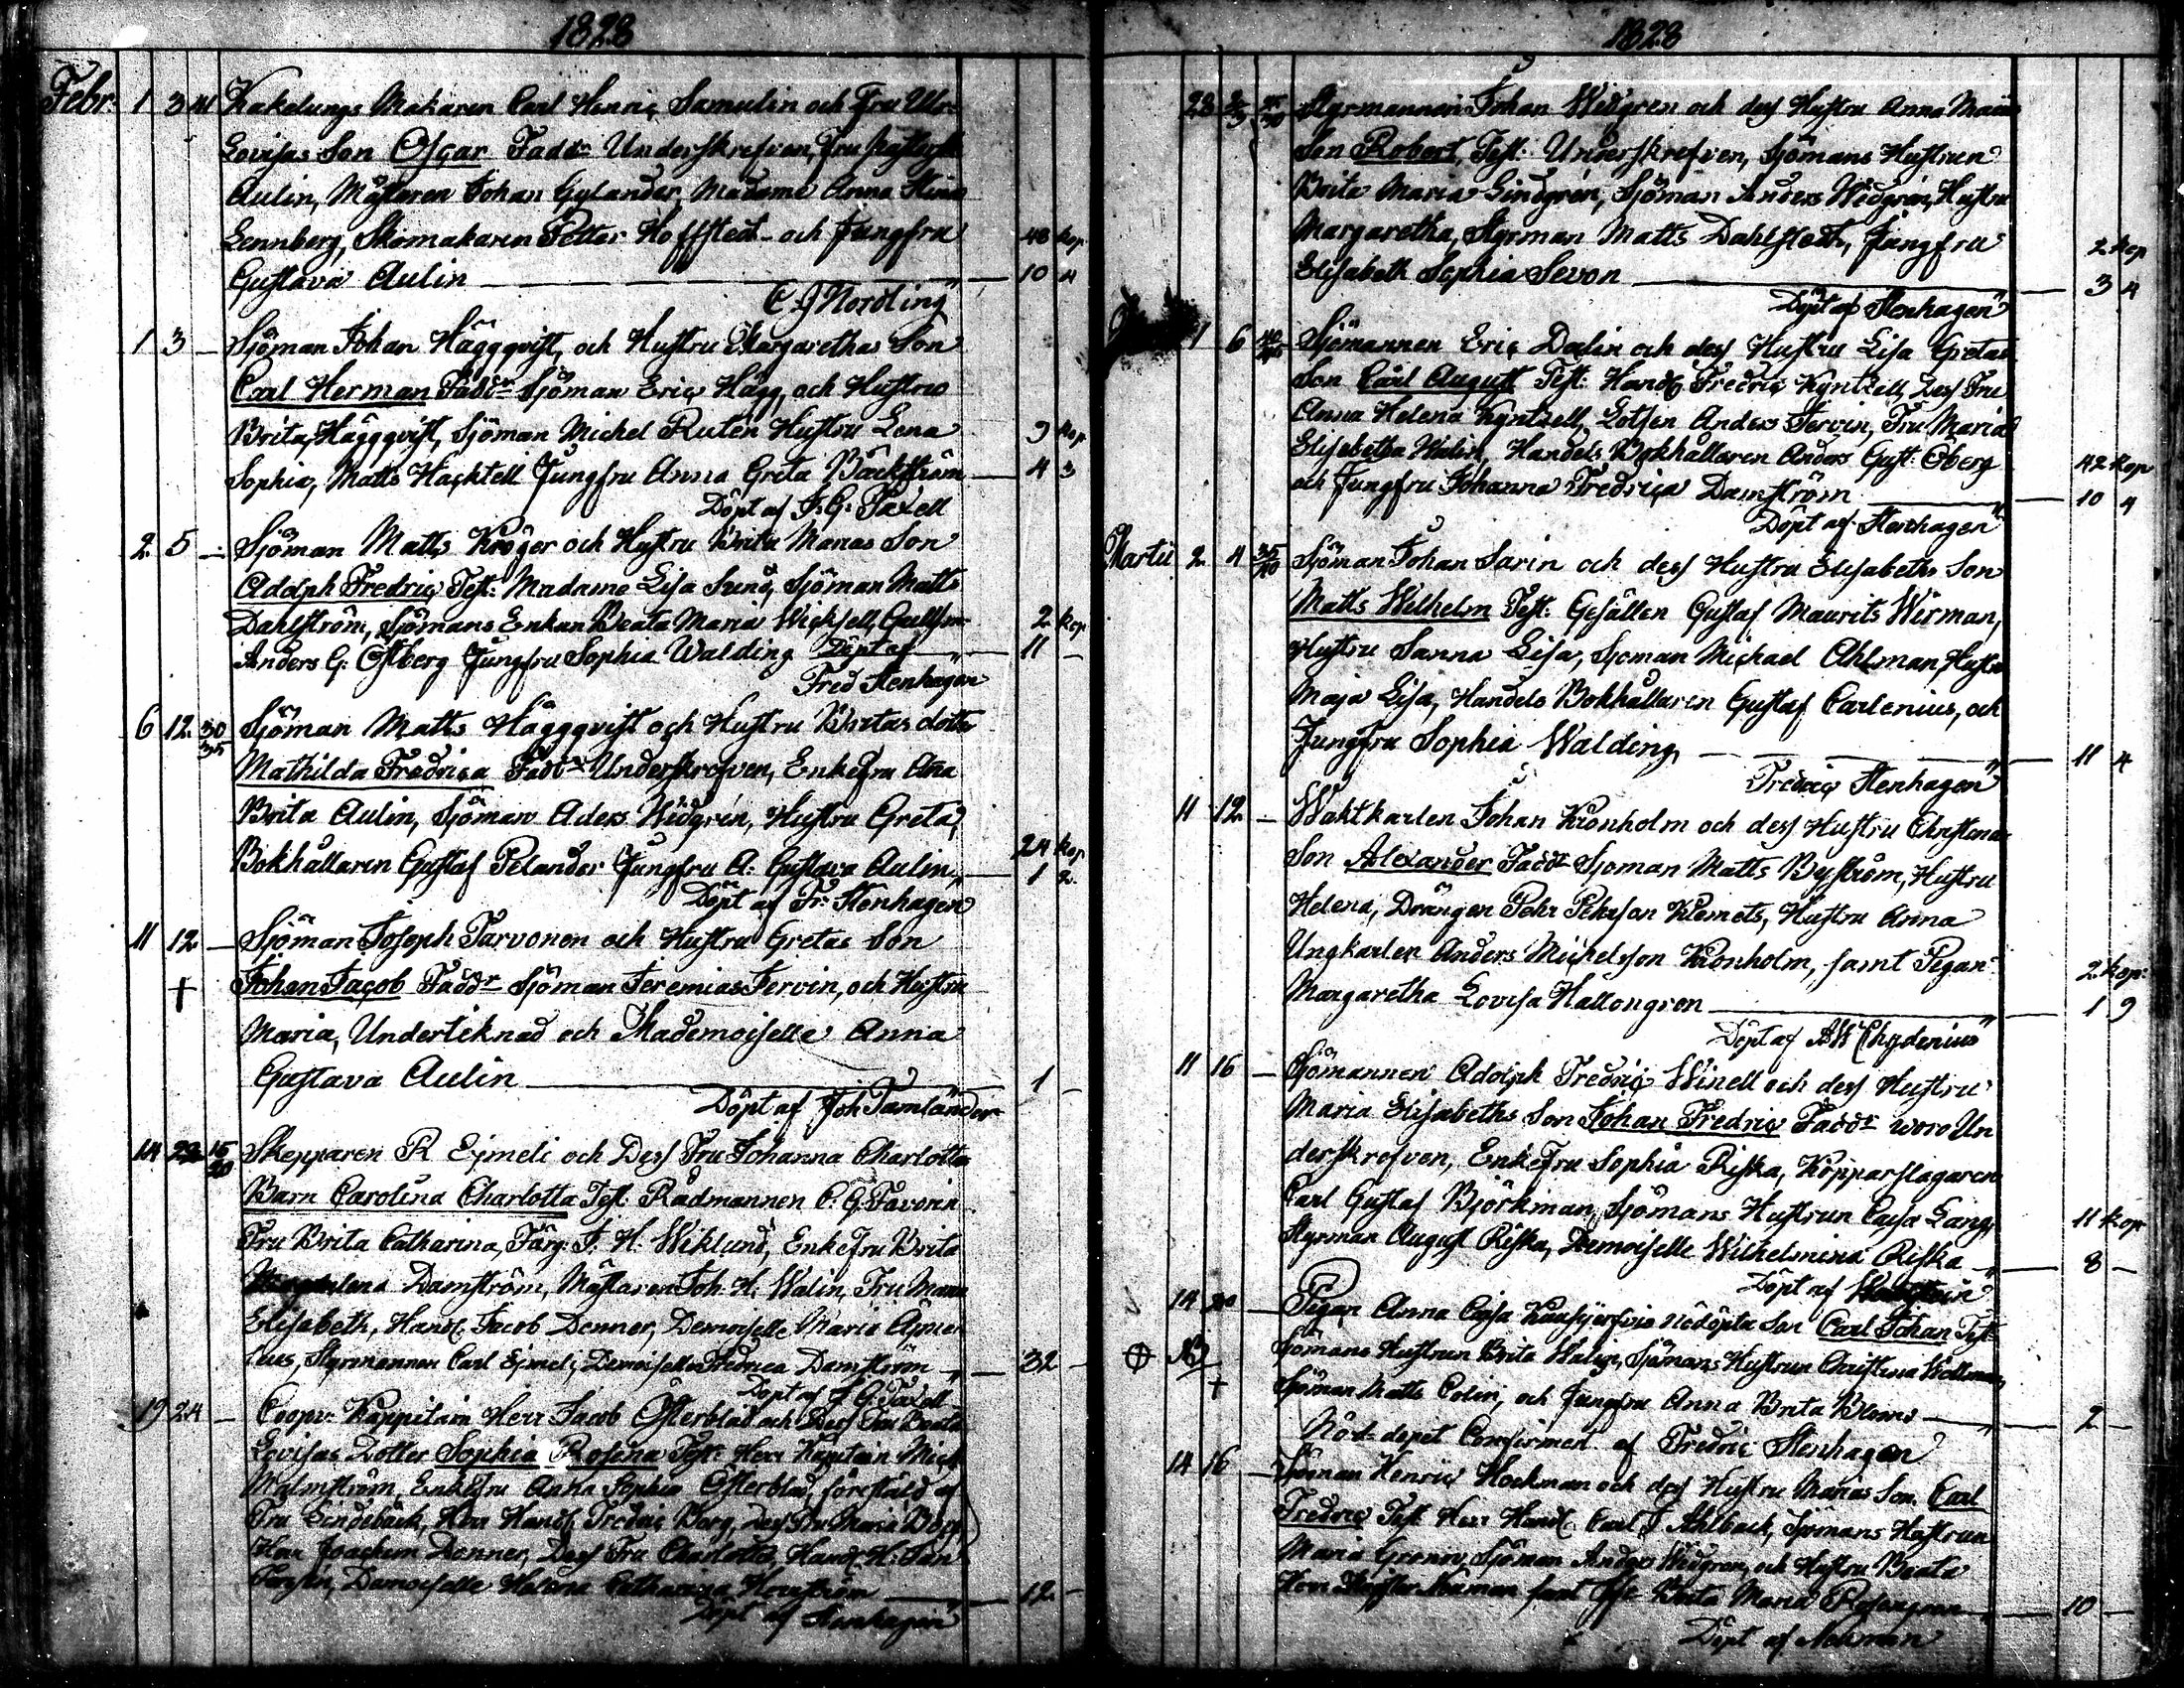 1828
Febr. 1 3 41 Kakelungs Makaren Carl Henric Samulin och Fru Ulr:
Lovisas Son Oscar Fadd:r Underskrefven, Fru
Aulin, Mästaren Johan Gylander, Madame Anna Stina
Lennberg, Skomakaren Petter Hoffsted och Jungfru 48 kop
Gustava Aulin 10 4
C J Nordling
1 3 – Sjöman Johan Häggqvist, och Hustru Margarethas Son
Carl Herman Fadd:r Sjöman Eric Hägg, och Hustru
Brita Häggqvist, Sjöman Michel Ruten Hustru Lena 9 kop
Sophia, Matts Hacktell Jungfru Anna Greta Bäckström 4 3
Döpt af J. G. Taxell
2 5 – Sjöman Matts Kröger och Hustru Brita Marias Son
Adolph Fredric Test: Madame Lisa Sund, Sjöman Matts
Dahlström, Sjömans Enkan Beata Maria Wicksell, 2 kop
Anders G: Östberg Jungfru Sophia Walding Döpt af 11 –
Fred Stenhagen
6 12 30/35 Sjöman Matts Häggqvist och Hustru Britas dotter
Mathilda Fredrica Fadd:r Underskrefven, Enkefru Ana
Brita Aulin, Sjöman Aders Widgrén, Hustru Greta, 24 kop
Bokhållaren Gustaf Pelander Jungfru A: Gustava Aulin 1 2
Döpt af Fr: Stenhagen
11 12 – Sjöman Joseph Tarvonen och Hustru Gretas Son
† Johan Jacob Fadd:r Sjöman Jeremias Jervin, och Hustru
Maria, Undertecknad och Mademoiselle Anna
Gustava Aulin 1 –
Döpt af Joh Tamlander
14 22 15/20 Skepparen R Ejmeli och Dess Fru Johanna Charlottas
Barn Carolina Charlotta Test. Rådmannen C. G. Favorin
Fru Brita Catharina, Färg: J. H. Wiklund, Enkefru Brita
Damström, Mästaren Joh. H. Walin, Fru Maria
Elisabeth, Handl. Jacob Donner, Demoiselle Maria
Styrmannen Carl Ejmeli, Demoiselle Fredrica Damström 32 –
Döpt af J G: Taxell
19 24 – Coopv: Kappitain Herr Jacob Österblad och Dess Fru Beata
Lovisas Dotter Sophia Rosina Test: Herr Kapitain Mich
Malmström, Enkefru Anna Sophia Österblad, förestäld af
Fru Lindebäck, Herr Handl. Fredric Borg, Dess Fru Maria Borg
Herr Joachim Donner, Dess Fru Charlotta, Handl. H:
Demoiselle Helena Catharina 12 –
Döpt af Stenhagen
1828
28 2/3 25/30 Styrmannen Johan Widgren och dess Hustru Anna Marias
Son Robert, Test: Underskrefven, Sjömans Hustrun
Brita Maria Lindgrén, Sjöman Anders Widgrén, Hustru
Margaretha, Styrman Matts Dahlstedt, Jungfru 2 kop
Elisabeth Sophia Sevon 3 4
Döpt af Stenhagen
1 6 Sjömannen Eric Dalin och dess Hustru Lisa Gretas
Son Carl August Test: Handl. Fredric Kyntzell, Dess Fru
Anna Helena Kyntzell, Lotsen Anders Jervin, Fru Maria
Elisabetha Walin, Handels Bokhållaren Anders Gust: Öberg 42 kop
och Jungfru Johanna Fredrica Damström 10 4
Döpt af Stenhagen
Martii 2 4 35/40 Sjöman Johan Sarin och dess Hustru Elisabeths Son
Matts Wilhelm Test: Gesällen Gustaf Maurits Wirman,
Hustru Sanna Lisa, Sjöman Michael Ahlman, Hustru
Maja Lisa, Handels Bokhållaren Gustaf Carlenius, och
Jungfru Sophia Walding 11 4
Fredric Stenhagen
11 12 – Waktkarlen Johan Kronholm och dess Hustru Christinas
Son Alexander Fadd:r Sjöman Matts Byström, Hustru
Helena, Drängen Pehr Pehrson Klemets, Hustru Anna
Ungkarlen Anders Michelsson Kronholm, samt Pigan 2 kop:
Margaretha Lovisa Hallongren 1 9
Döpt af AW Chydenius
11 16 – Sjömannen Adolph Fredric Winell och dess Hustru
Maria Elisabeths Son Johan Fredric Fadd:r woro Un
derskrefven, Enkefru Sophia Riska, Kopparslagaren
Carl Gustaf Björkman, Sjömans Hustrun Caisa Lang, 11 kop
Styrman August Riska, Demoiselle Wilhelmina Riska 8 –
Döpt af
14 20 – Pigan Anna Caisa nöddöpta Son Carl Johan Test
Sjömans Hustrun Brita Walin, Sjömans Hustrun Christina
† Sjöman Matts Colin, och Jungfru Anna Brita Bloms 2 –
Nöd-döpet Confirmert af Fredric Stenhagen
14 16 – Sjöman Henric Hockman och dess Hustru Marias Son Carl
Fredric Test. Herr Handl. Carl J Ahlback, Sjömans Hustrun
Maria Sjöman Anders Widgren, och Hustru Beata
Herr Neuman samt Brita Maria Rosengren 10 –
Döpt af Neuman